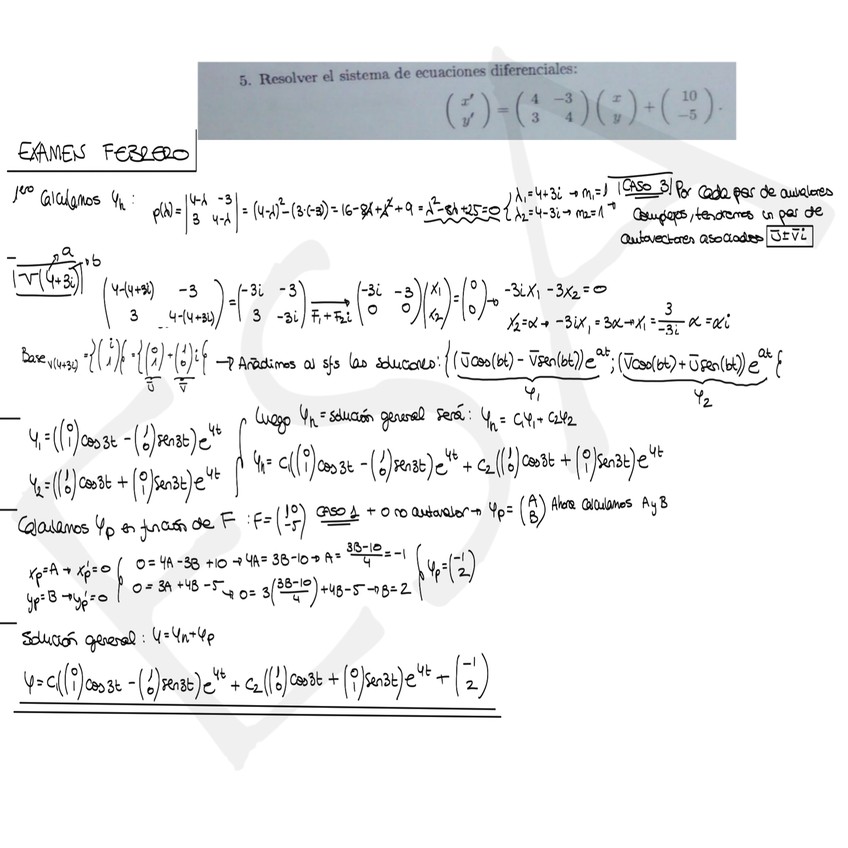 5. Resolver el sistema de ecuaciones diferenciales:
(x' y') = (4 -3 3 4) (x y) + (10 -5).
EXAMEN FEBRERO
1ero Calculamos φh : p(λ) = |4-λ -3 3 4-λ| = (4-λ)² - (3·(-3)) = 16 - 8λ + λ² + 9 = λ² - 8λ + 25 = 0 { λ₁ = 4+3i → m₁ = 1 λ₂ = 4-3i → m₂ = 1 → CASO 3 Por cada par de autovalores
complejos, tendremos un par de
autovectores asociados ū ± v̄i
V(4+3i) a b
(4-(4+3i) -3 3 4-(4+3i)) = (-3i -3 3 -3i) F₁+F₂i → (-3i -3 0 0) (x₁ x₂) = (0 0) → -3ix₁ - 3x₂ = 0
x₂ = α → -3ix₁ = 3α → x₁ = 3/-3i α = αi
Base V(4+3i) = {(i 1)} = {(0 1) + (1 0) i} ū v̄ → Añadimos al sfs las soluciones: {(ūcos(bt) - v̄sen(bt))e^at ; (v̄cos(bt) + ūsen(bt))e^at}
φ₁ φ₂
φ₁ = ((0 1) cos3t - (1 0) sen3t) e^4t
φ₂ = ((1 0) cos3t + (0 1) sen3t) e^4t
Luego φh = solución general será: φh = c₁φ₁ + c₂φ₂
φh = c₁((0 1) cos3t - (1 0) sen3t) e^4t + c₂((1 0) cos3t + (0 1) sen3t) e^4t
Calculamos φp en función de F : F = (10 -5) CASO 1 + 0 no autovalor → φp = (A B) Ahora calculamos A y B
xp = A → x'p = 0 { 0 = 4A - 3B + 10 → 4A = 3B - 10 → A = 3B-10/4 = -1
yp = B → y'p = 0 { 0 = 3A + 4B - 5 → 0 = 3(3B-10/4) + 4B - 5 → B = 2 } φp = (-1 2)
Solución general : φ = φh + φp
φ = c₁((0 1) cos3t - (1 0) sen3t) e^4t + c₂((1 0) cos3t + (0 1) sen3t) e^4t + (-1 2)